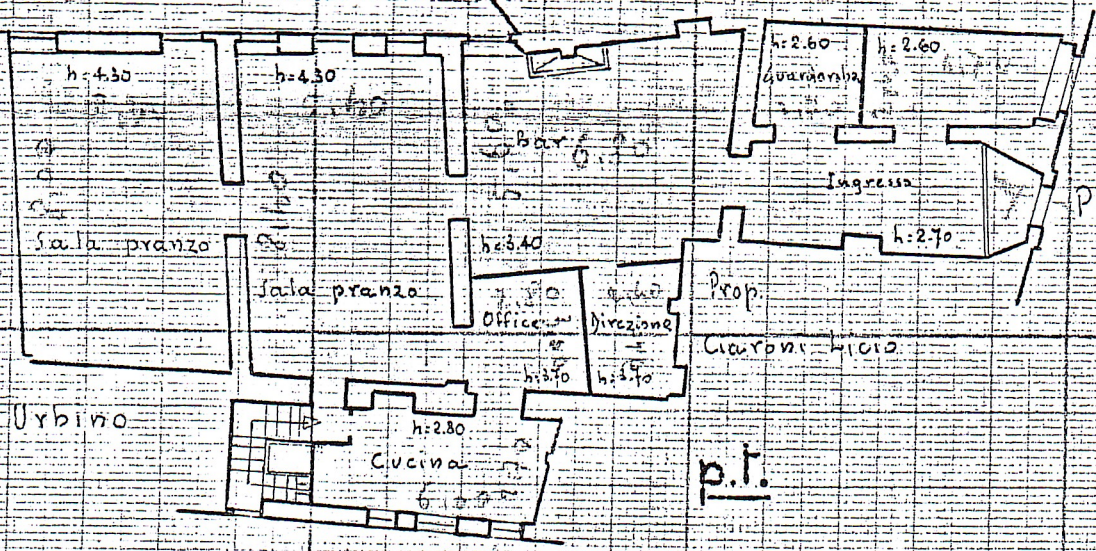 h=4.30
h=4.30
h=2.60
h=2.60
Guardaroba
bar
Ingresso
P
Sala pranzo
h=3.40
h=2.70
Sala pranzo
Office
Direzione
Prop.
Ciaroni Licio
h=3.70
h=3.70
Urbino
h=2.80
Cucina
p.t.